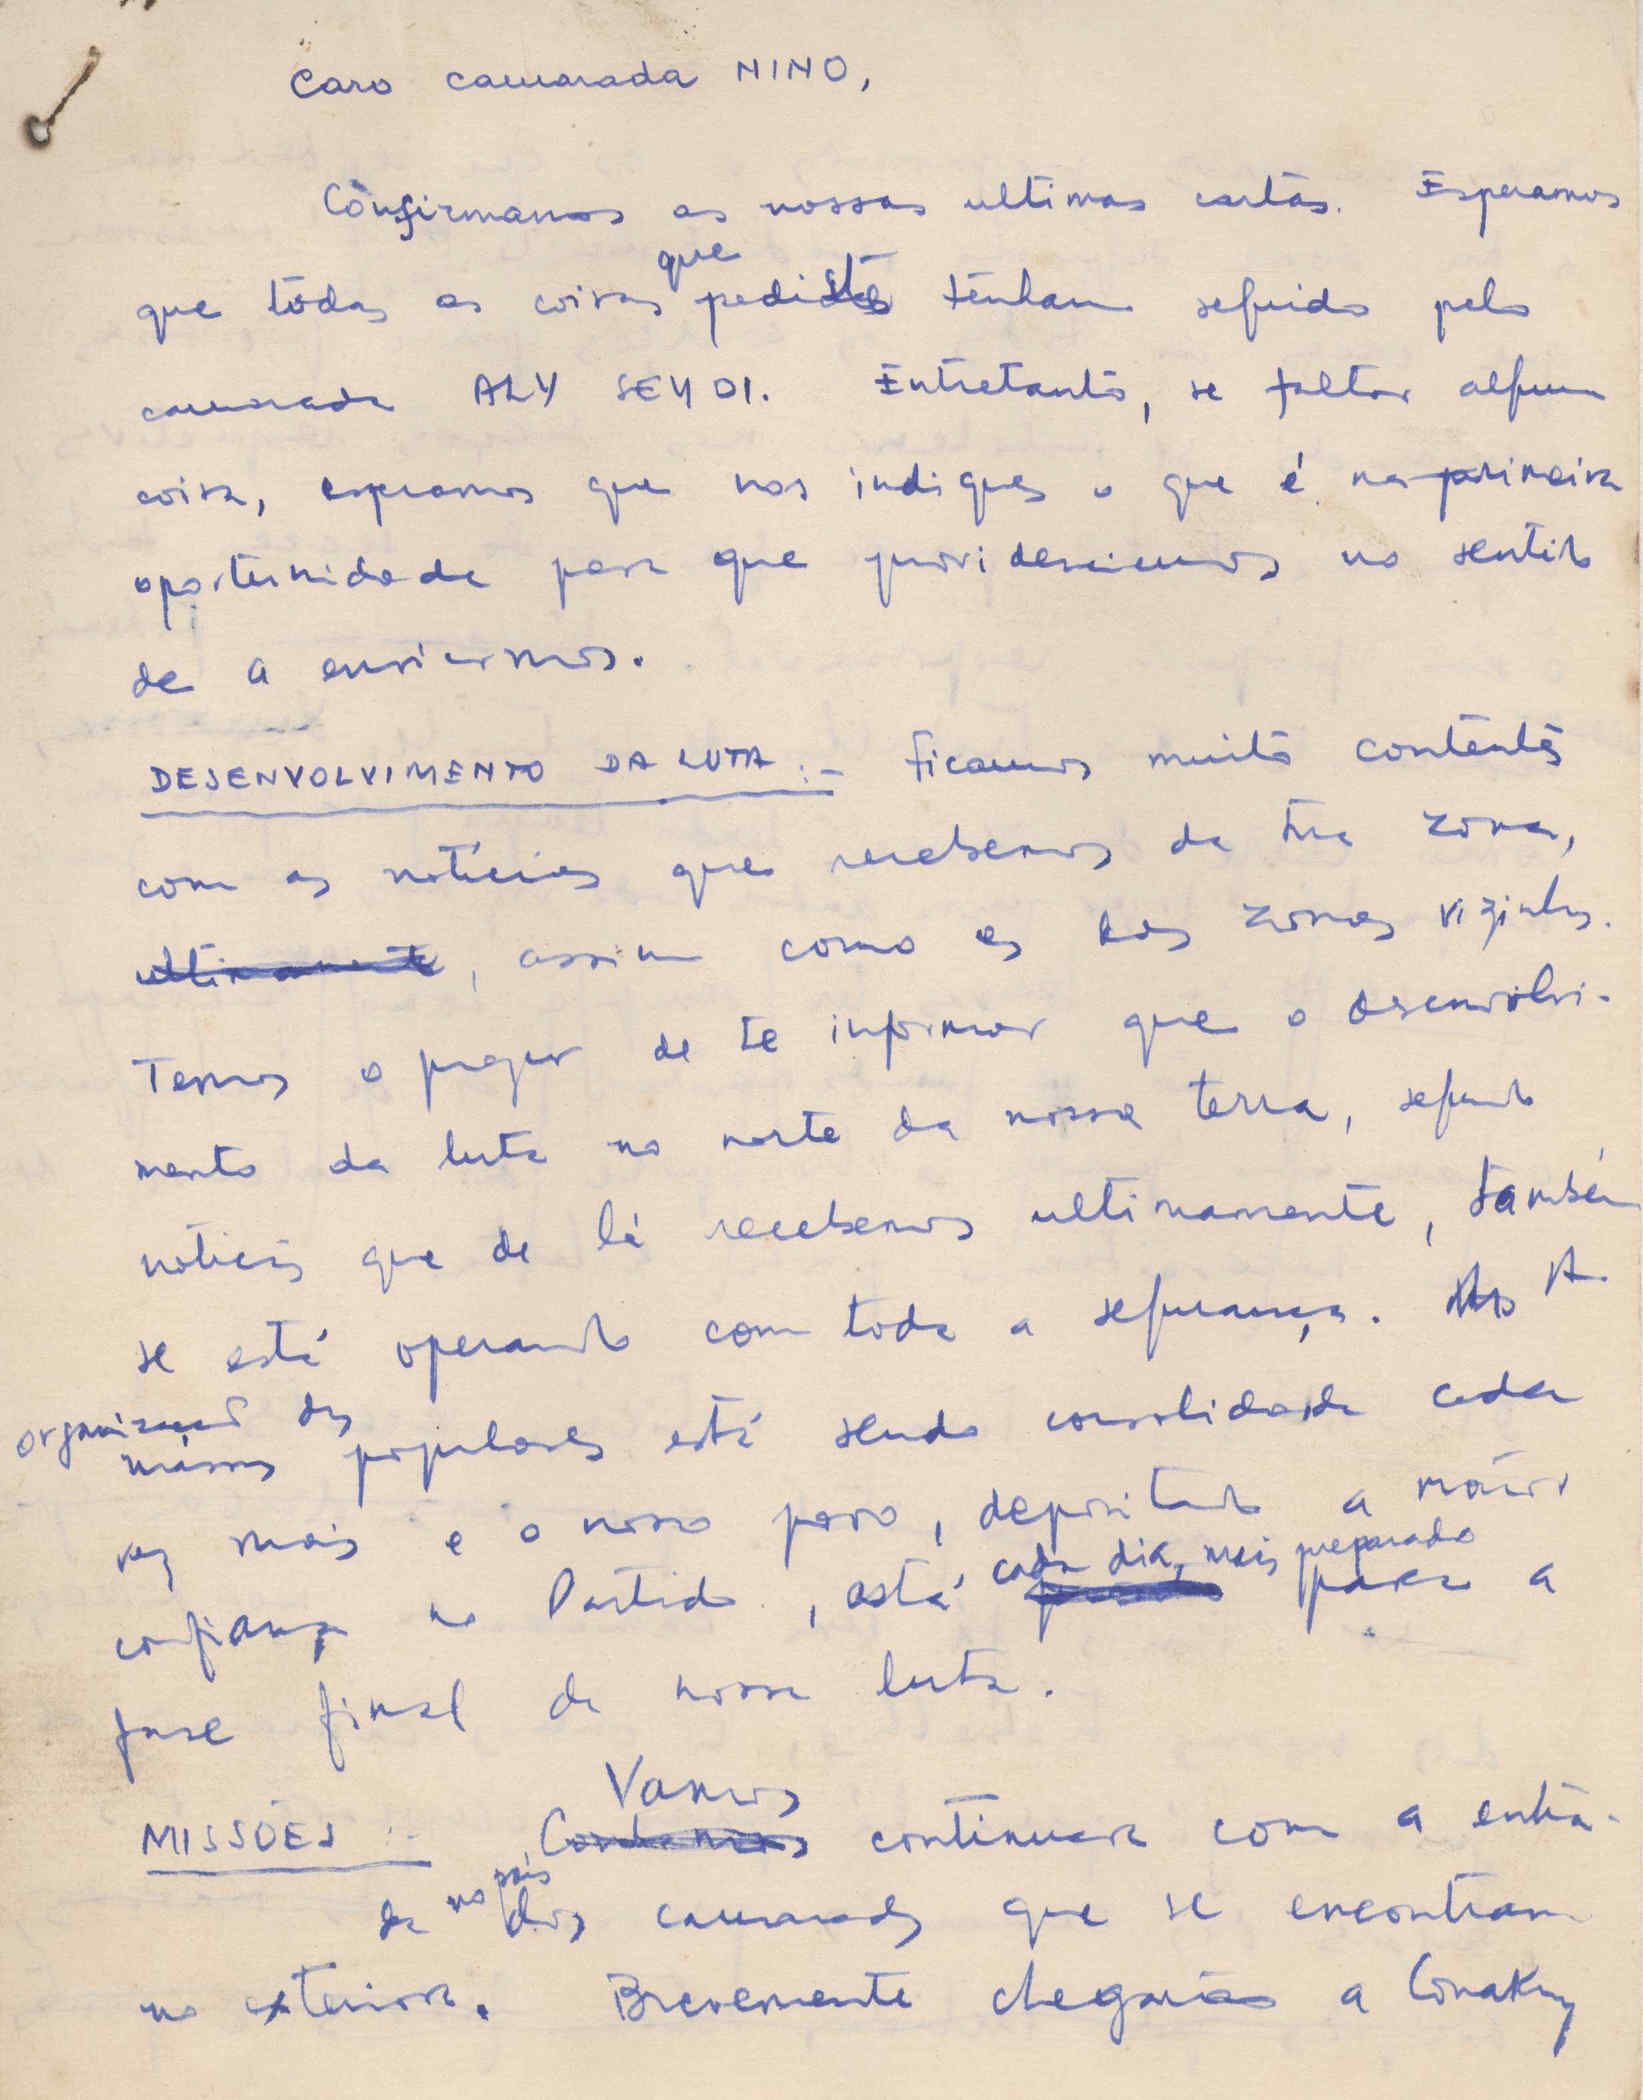 Caro camarada NINO,
Confirmamos as nossas ultimas cartas. Esperamos
que todas as coisas que pediste tenham seguido pelo
camarada ALY SEYDI. Entretanto, se faltar alguma
coisa, esperamos que nos indiques o que é na primeira
oportunidade para que providenciemos no sentido
de a enviarmos.
DESENVOLVIMENTO DA LUTA :- Ficamos muito contentes
com as notícias que recebemos da tua zona,
ultimamente, assim como as das zonas vizinhas.
Temos o prazer de te informar que o desenvolvi-
mento da luta no norte da nossa terra, segundo
notícias que de lá recebemos ultimamente, também
se está operando com toda a segurança. A
organização das
massas populares está sendo consolidada cada
vez mais e o nosso povo, depositando a maior
cada dia, mais preparado
confiança no Partido, está para a
fase final da nossa luta.
Vamos
MISSÕES :- continuar com a entra-
da no país dos camaradas que se encontram
no exterior. Brevemente chegarão a Conakry